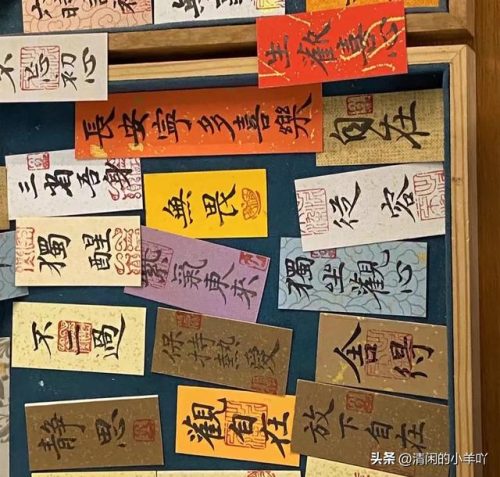 不忘初心
生歡喜心
長安寧多喜樂
自在
三省吾身
無畏
從容
獨醒
紫氣東來
獨坐觀心
不二過
保持熱愛
舍得
靜思
觀自在
放下自在
头条 @清闲的小羊吖